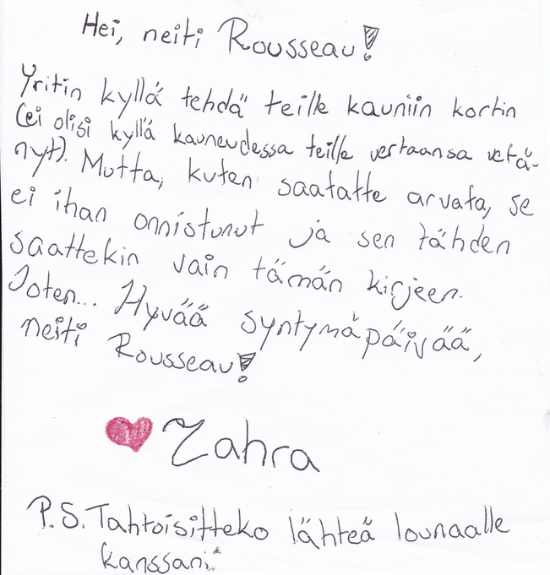 Hei, neiti Rousseau!
Yritin kyllä tehdä teille kauniin kortin
(ei olisi kyllä kauneudessa teille vertaansa vetä-
nyt). Mutta, kuten saatatte arvata, se
ei ihan onnistunut ja sen tähden
saattekin vain tämän kirjeen.
Joten... Hyvää syntymäpäivää,
neiti Rousseau!
Zahra
P.S. Tahtoisitteko lähteä lounaalle
kanssani